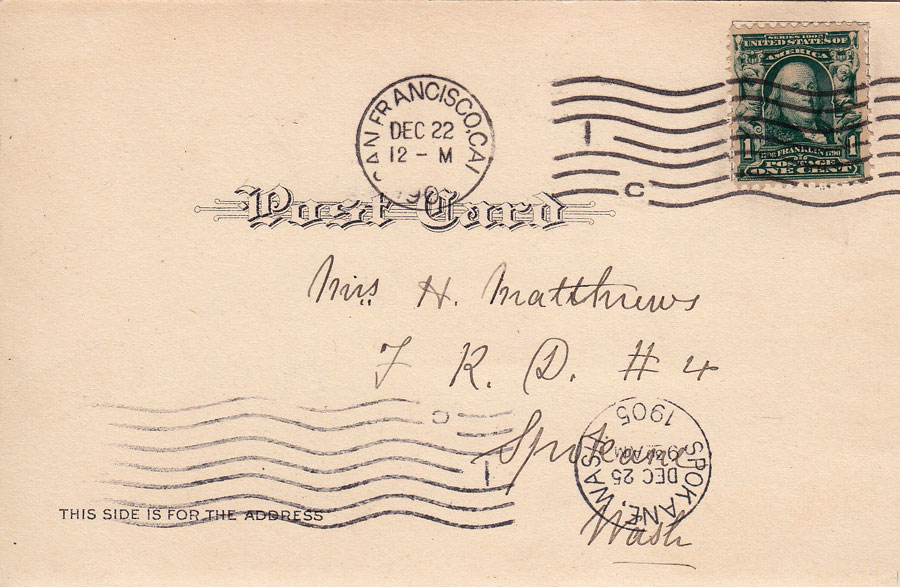 SERIES 1902
UNITED STATES OF
AMERICA
1 1
FRANKLIN
POSTAGE
ONE CENT
SAN FRANCISCO, CAL
DEC 22
12 - M
190
1
C
Post Card
Mrs H. Matthews
F R. D. # 4
Spokane
Wash
SPOKANE, WASH.
DEC 25
1905
C
1
THIS SIDE IS FOR THE ADDRESS